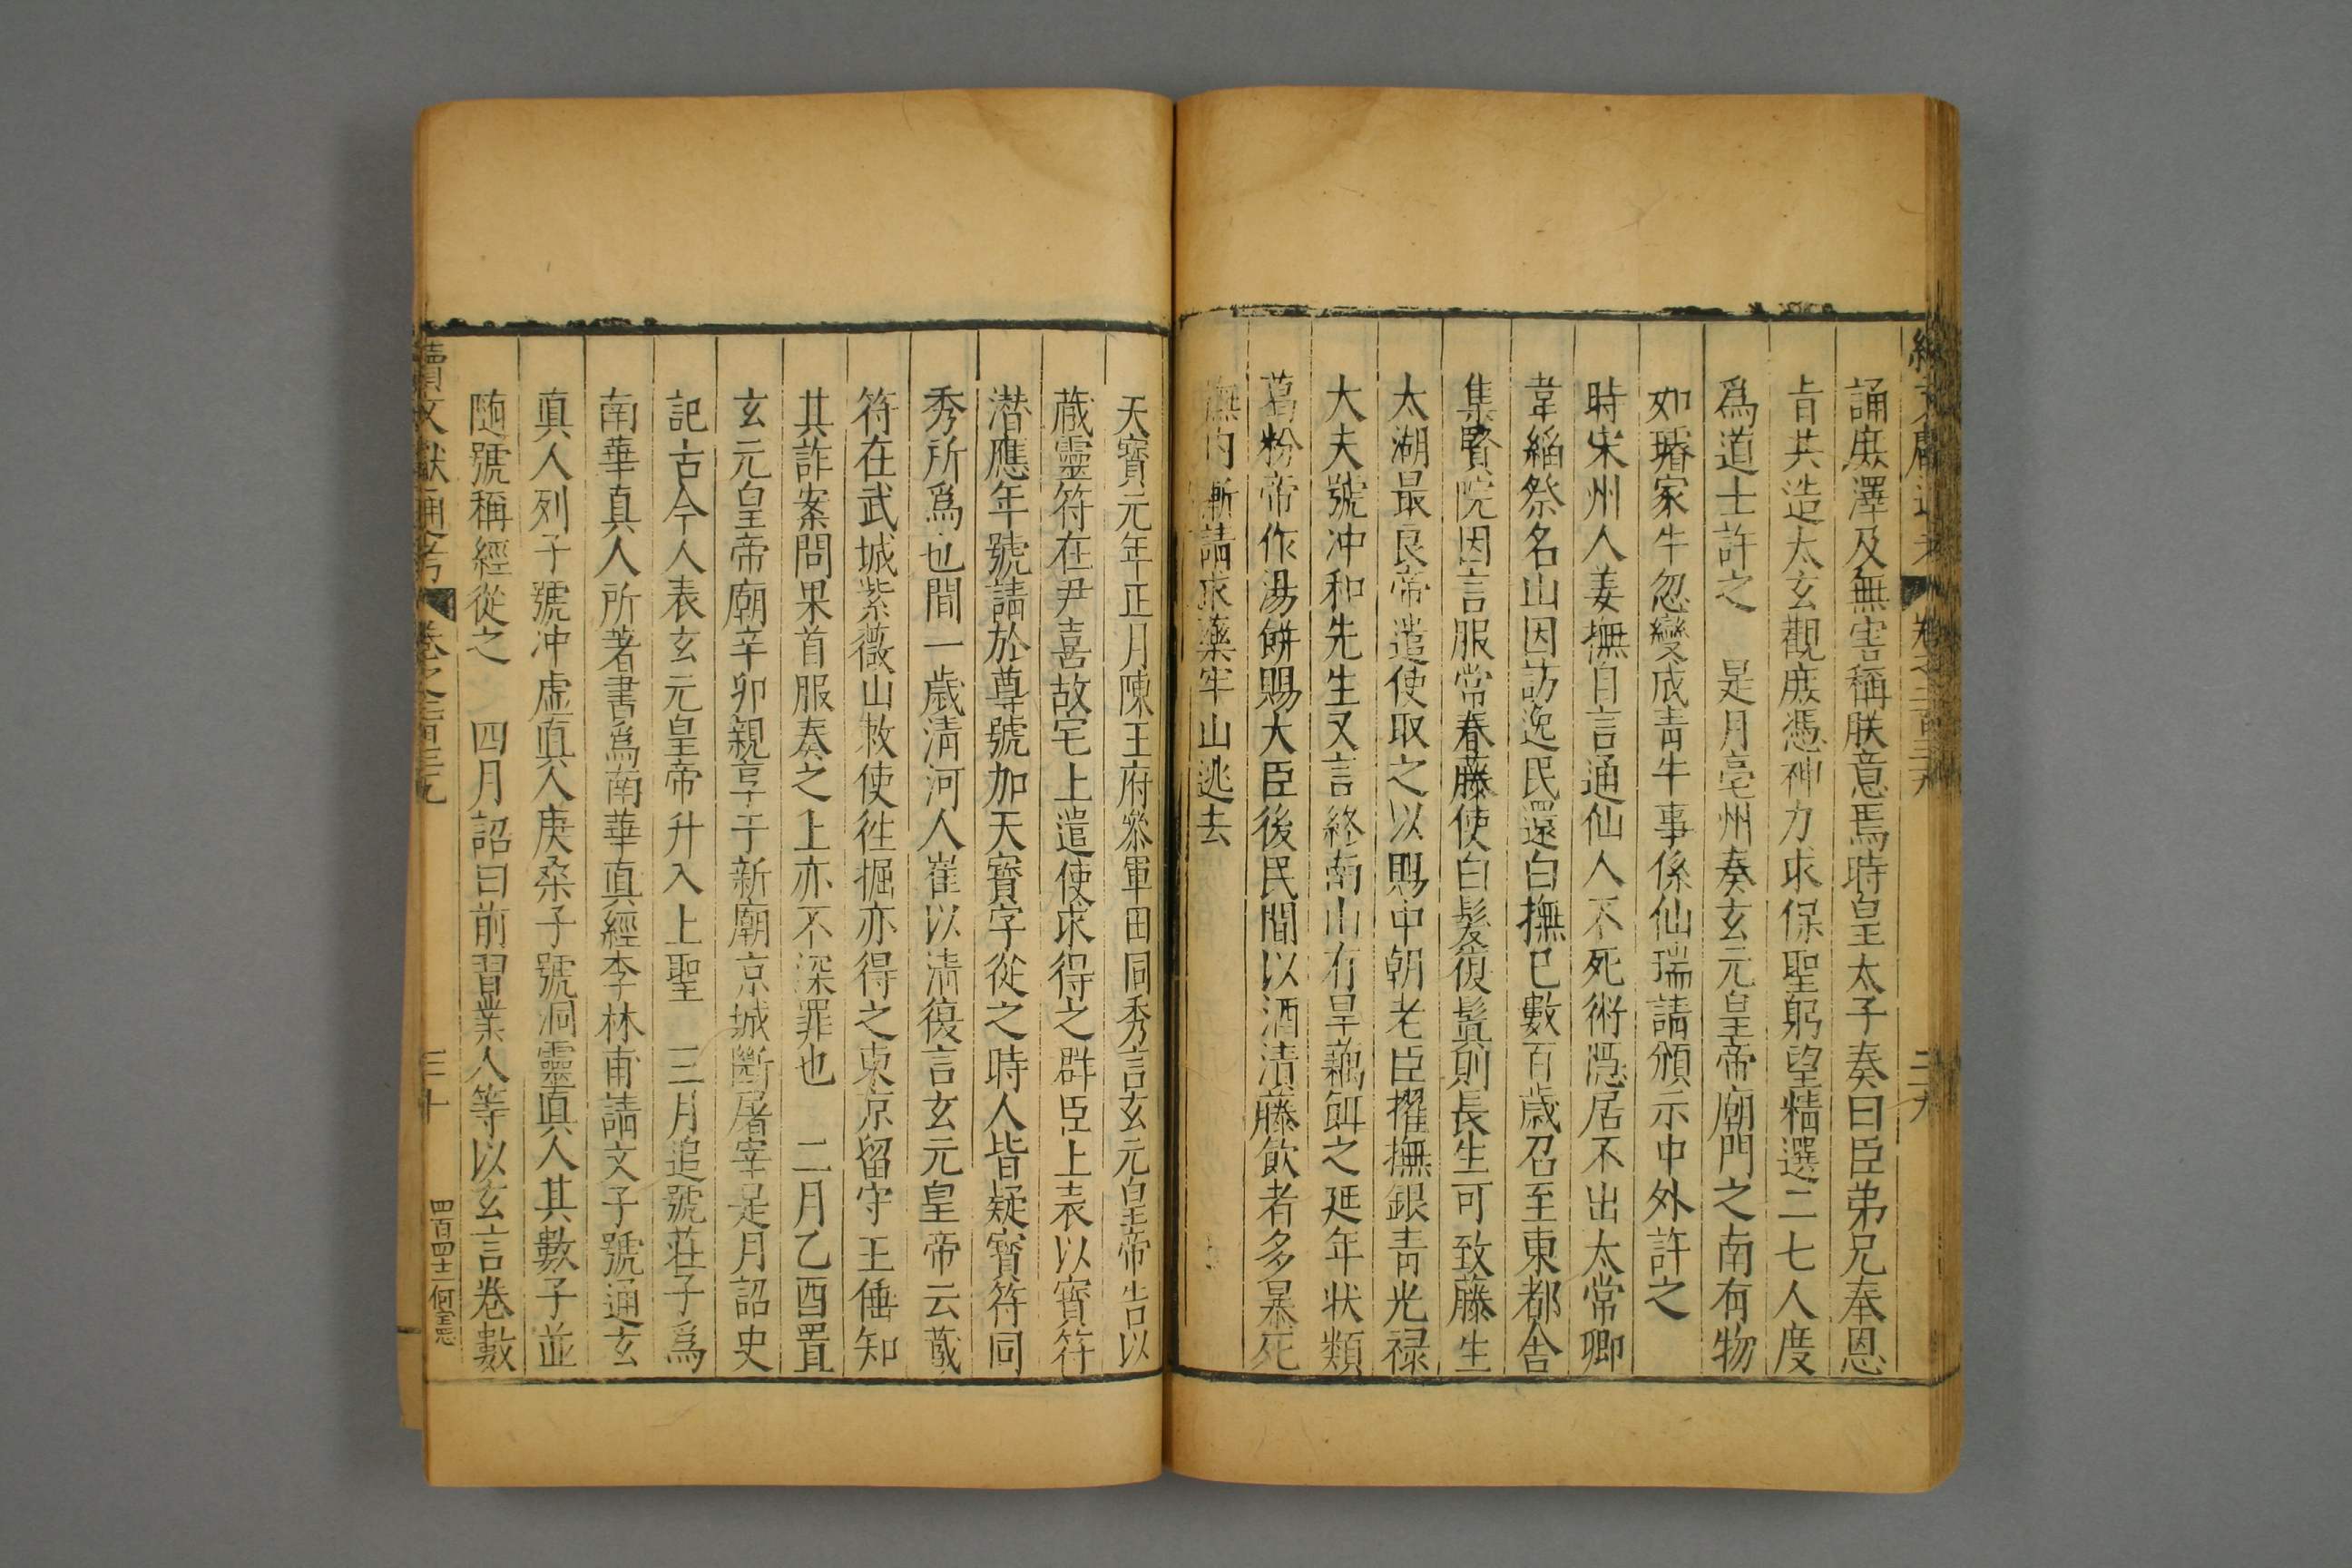 誦庶澤及無害稱朕意焉時皇太子奏曰臣弟兄奉恩
旨共造太玄觀庶憑神力求保聖躬望精選二七人度
爲道士許之　是月亳州奏玄元皇帝廟門之南有物
如瑃家牛忽變成青牛事係仙瑞請頒示中外許之
時宋州人姜撫自言通仙人不死術隱居不出太常卿
韋縚祭名山因訪逸民還白撫已數百歲召至東都舍
集賢院因言服常春藤使白髮復鬒則長生可致藤生
太湖最良帝遣使取之以賜中朝老臣擢撫銀青光禄
大夫號冲和先生又言終南山有旱藕餌之延年状類
葛粉帝作湯餅賜大臣後民間以酒漬藤飲者多暴死
撫内慚請求藥牢山逃去
天寳元年正月陳王府叅軍田同秀言玄元皇帝告以
蔵靈符在尹喜故宅上遣使求得之群臣上表以寳符
潜應年號請於尊號加天寳字從之時人皆疑寳符同
秀所爲也間一歲清河人崔以清復言玄元皇帝云蔵
符在武城紫薇山敕使徃掘亦得之東京留守王倕知
其詐案問果首服奏之上亦不深罪也　二月乙酉置
玄元皇帝廟辛卯親享于新廟京城斷屠宰是月詔史
記古今人表玄元皇帝升入上聖　三月追號莊子爲
南華真人所著書爲南華真經李林甫請文子號通玄
真人列子號冲虛真人庚桑子號洞靈真人其數子並
随號稱經從之　四月詔曰前習業人等以玄言卷數
續文獻通考　卷之二百三九　三十　四百四十二何